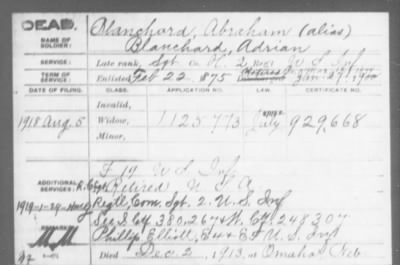 DEAD.
NAME OF SOLDIER:
Blanchord, Abraham (alias)
Blanchard, Adrian
SERVICE:
Late rank, Sgt Co H. 2 Regt U S Inf
TERM OF SERVICE:
Enlisted Feb 22, 1875
DATE OF FILING. CLASS. APPLICATION NO. LAW. CERTIFICATE NO.
Invalid,
1918 Aug. 5 Widow, 1125773 July 929,668
Minor,
F 19 U S Inf
ADDITIONAL SERVICES:
Retired U S A
Regtl, Com. Sgt. 2. U. S. Inf
REMARKS:
Phillip Elliott, E 4 & E U. S. Inf
Died Dec. 2, 1913, at Omaha Neb